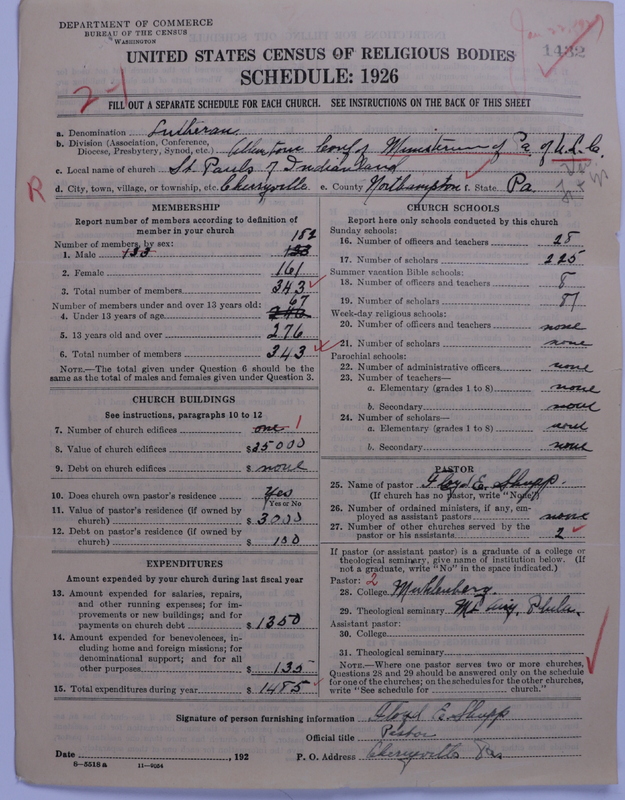 DEPARTMENT OF COMMERCE
BUREAU OF THE CENSUS
WASHINGTON
1432
UNITED STATES CENSUS OF RELIGIOUS BODIES
SCHEDULE: 1926
2-1
FILL OUT A SEPARATE SCHEDULE FOR EACH CHURCH. SEE INSTRUCTIONS ON THE BACK OF THIS SHEET
a. Denomination Lutheran
b. Division (Association, Conference, Diocese, Presbytery, Synod, etc.) Allentown Conf of Ministerium of Pa. of U.L.C.
c. Local name of church St. Pauls of Indianland
R
d. City, town, village, or township, etc. Cherryville e. County Northampton f. State Pa.
MEMBERSHIP
Report number of members according to definition of member in your church
Number of members, by sex:
182
1. Male 133
2. Female 161
3. Total number of members 343
Number of members under and over 13 years old:
67
4. Under 13 years of age
5. 13 years old and over 276
6. Total number of members 343
NOTE.—The total given under Question 6 should be the same as the total of males and females given under Question 3.
CHURCH BUILDINGS
See instructions, paragraphs 10 to 12
7. Number of church edifices one 1
8. Value of church edifices $25000
9. Debt on church edifices $ none
10. Does church own pastor's residence Yes
(Yes or No)
11. Value of pastor's residence (if owned by church) $3000
12. Debt on pastor's residence (if owned by church) $ 100
EXPENDITURES
Amount expended by your church during last fiscal year
13. Amount expended for salaries, repairs, and other running expenses; for improvements or new buildings; and for payments on church debt $1350
14. Amount expended for benevolences, including home and foreign missions; for denominational support; and for all other purposes $ 135
15. Total expenditures during year $ 1485
CHURCH SCHOOLS
Report here only schools conducted by this church
Sunday schools:
16. Number of officers and teachers 28
17. Number of scholars 225
Summer vacation Bible schools:
18. Number of officers and teachers 8
19. Number of scholars 87
Week-day religious schools:
20. Number of officers and teachers none
21. Number of scholars none
Parochial schools:
22. Number of administrative officers none
23. Number of teachers—
a. Elementary (grades 1 to 8) none
b. Secondary none
24. Number of scholars—
a. Elementary (grades 1 to 8) none
b. Secondary none
PASTOR
25. Name of pastor Floyd E. Shupp.
(If church has no pastor, write "None")
26. Number of ordained ministers, if any, employed as assistant pastors none
27. Number of other churches served by the pastor or his assistants 2
If pastor (or assistant pastor) is a graduate of a college or theological seminary, give name of institution below. (If not a graduate, write "No" in the space indicated.)
Pastor: 2
28. College Muhlenberg.
29. Theological seminary Mt. Airy, Phila.
Assistant pastor:
30. College
31. Theological seminary
NOTE.—Where one pastor serves two or more churches, Questions 28 and 29 should be answered only on the schedule for one of the churches; on the schedules for the other churches, write "See schedule for church."
Signature of person furnishing information Floyd E. Shupp
Official title Pastor
Date , 192 P. O. Address Cherryville Pa.
8—5518 a 11—9254